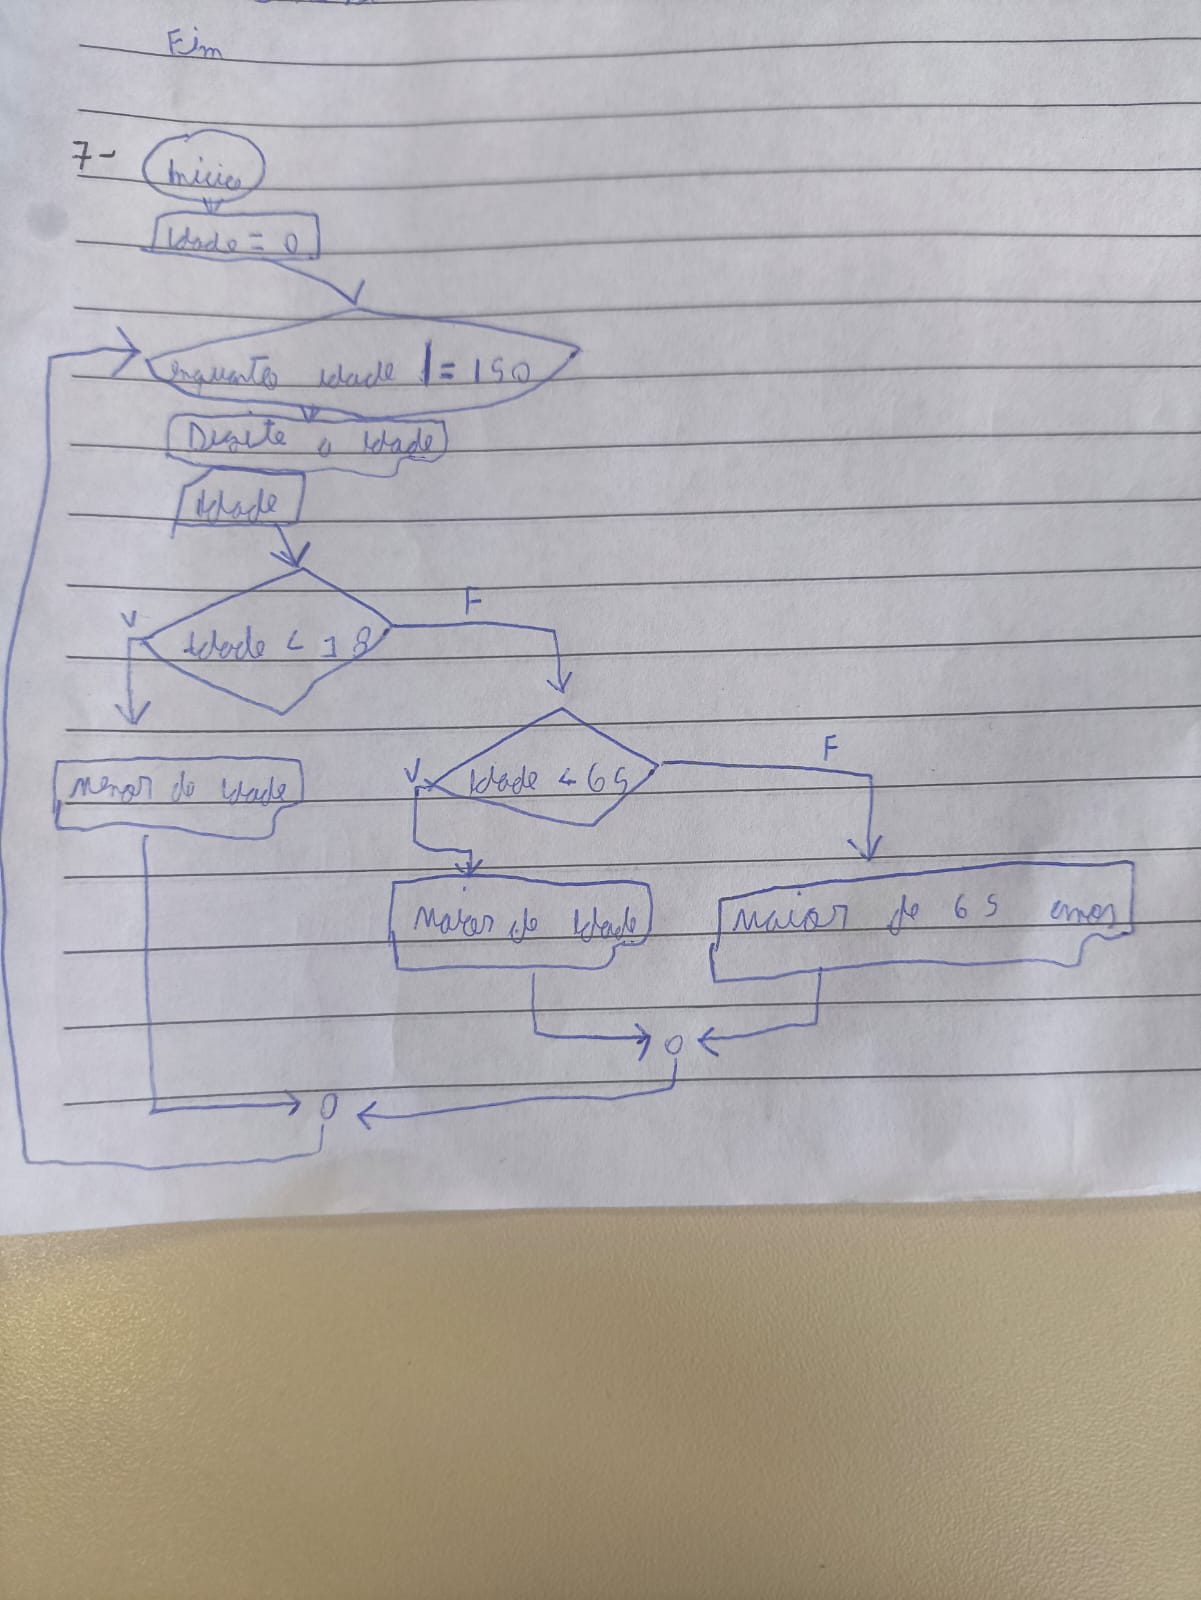 Fim
7- Início
Idade = 0
enquanto idade != 150
Digite a Idade
Idade
V
F
Idade < 18
F
Menor de Idade
V
Idade < 65
Maior de Idade
Maior de 65 anos